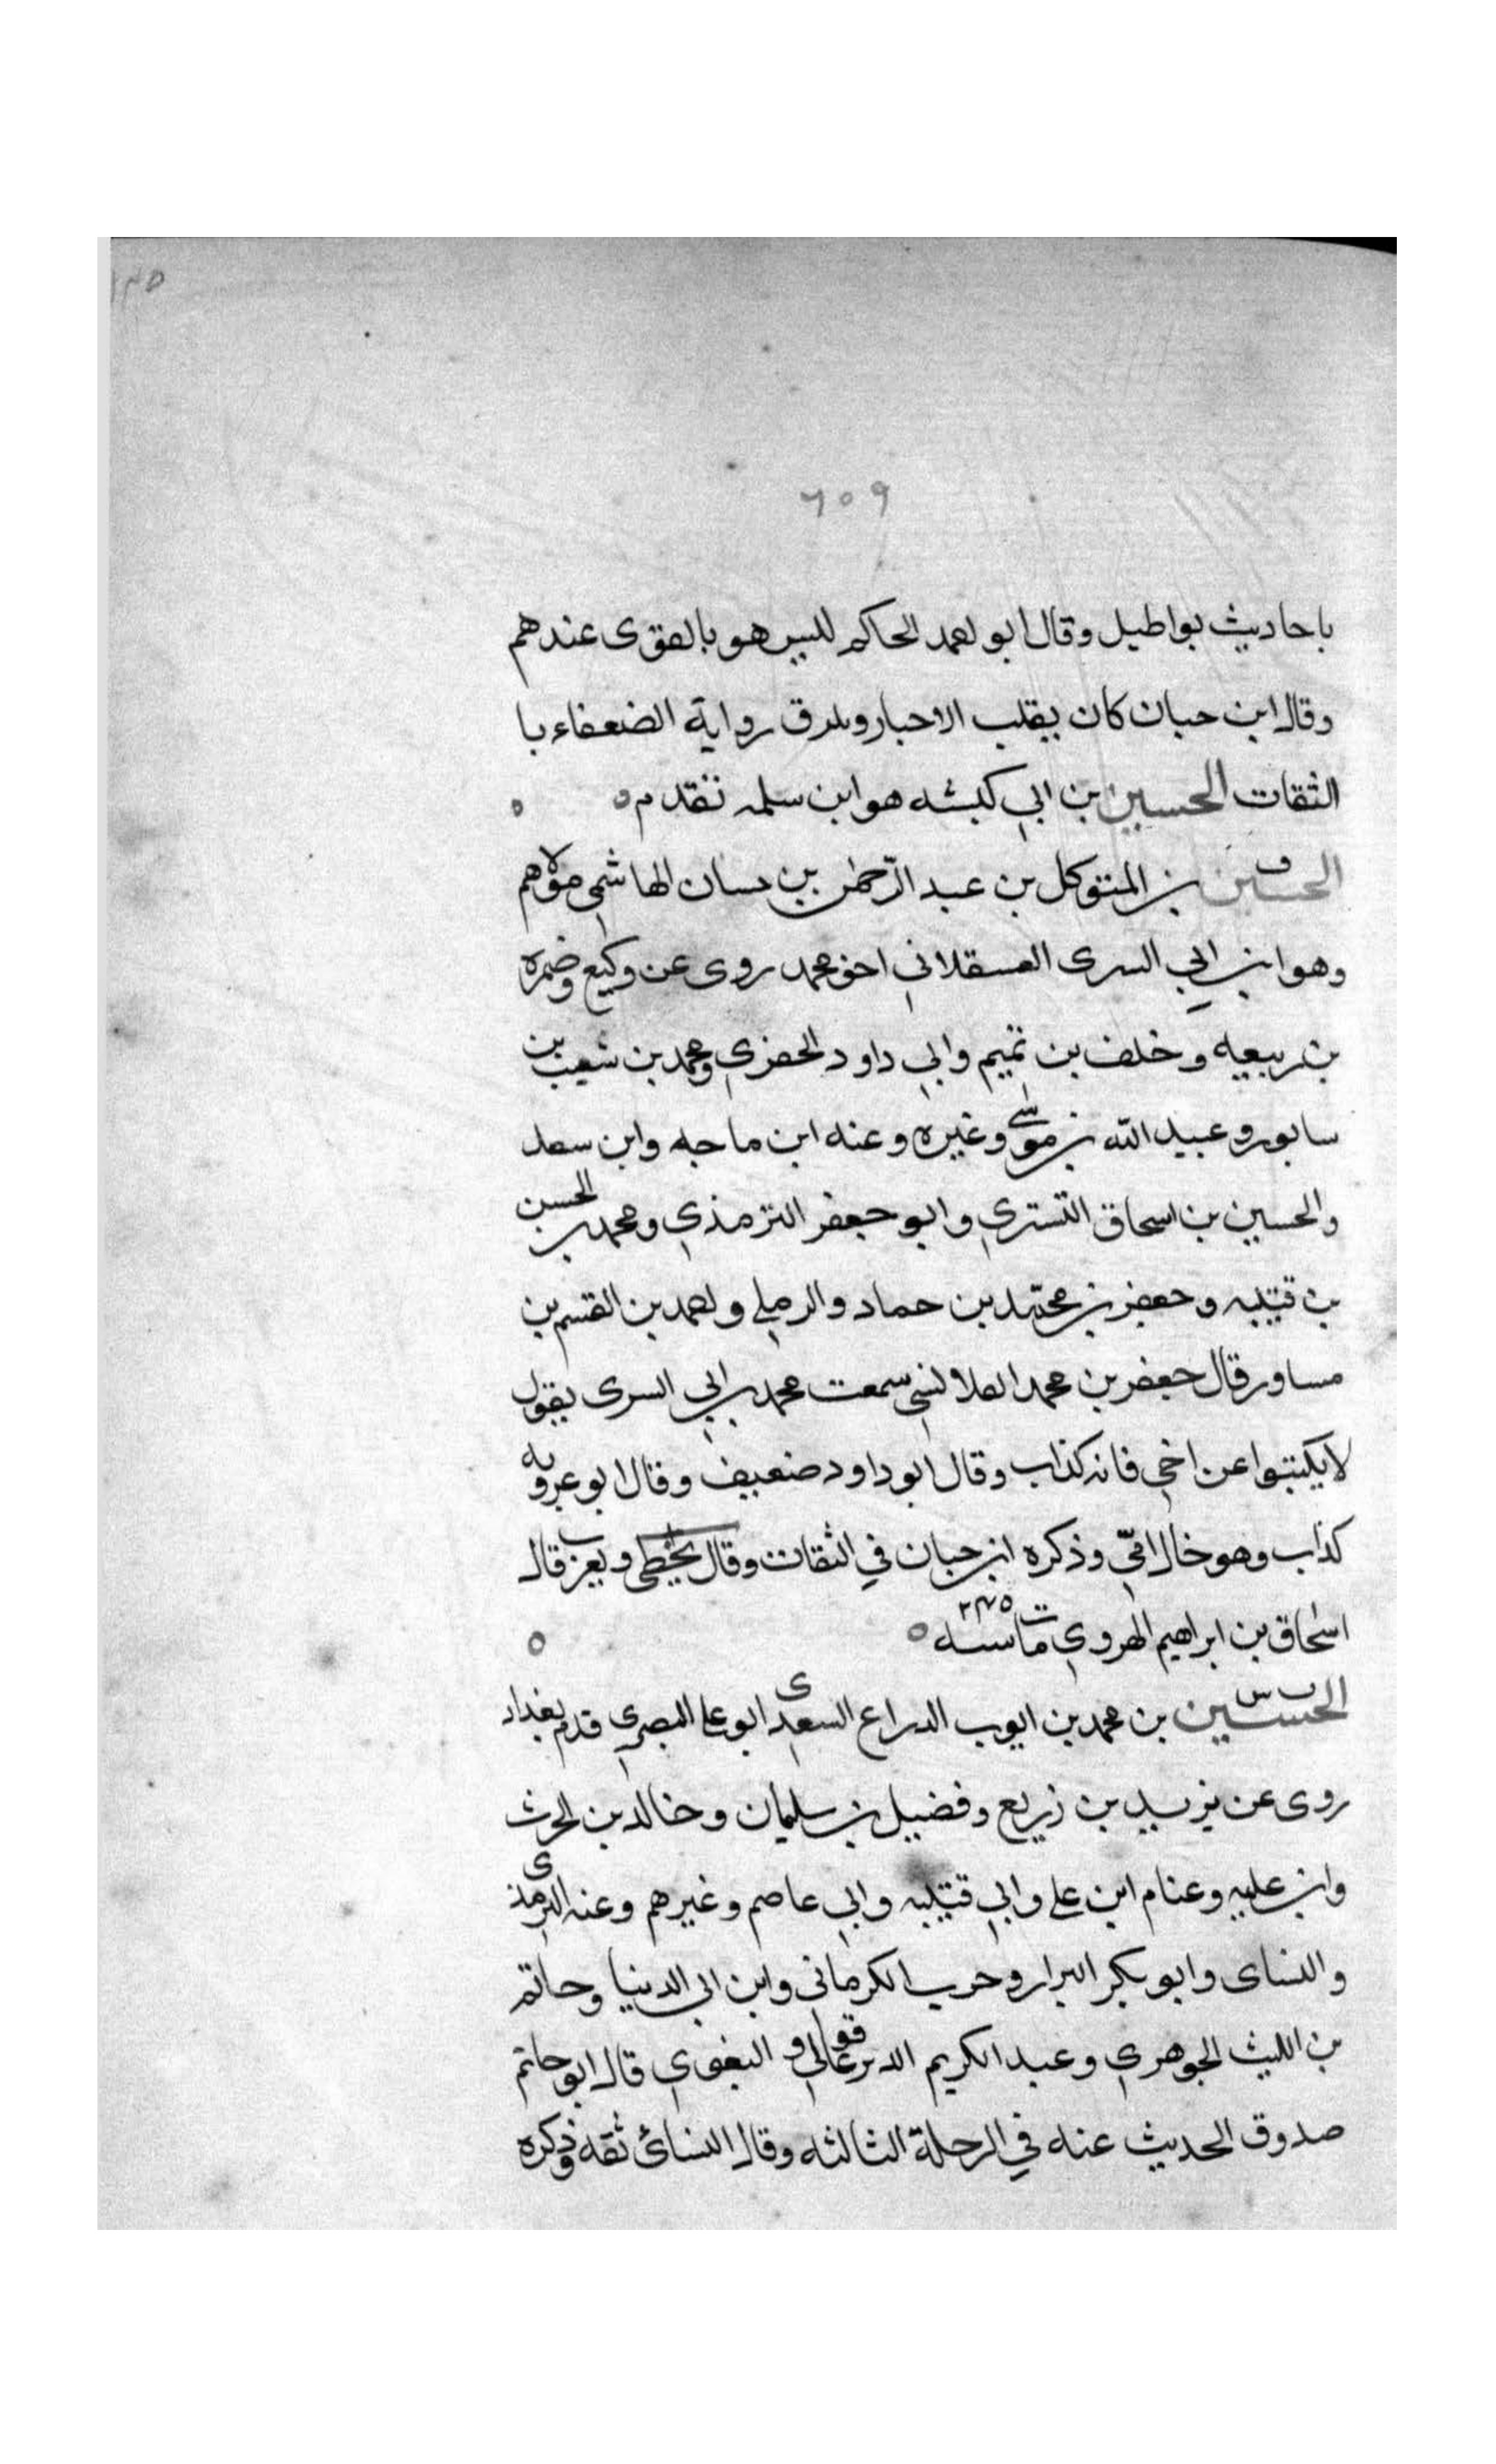 ١٢٥
٦٥٩
باحاديث بواطيل وقال ابو احمد الحاكم لليس هو بالقوى عندهم
وقال ابن حبان كان يقلب الاخبار ويلزق رواية الضعفاء با
الثقات الحسين بن ابي كبشه هو ابن سلمه تقدم ه ه
الحسين بن المتوكل بن عبد الرحمن بن حسان الهاشمي مولاهم
وهو ابن ابي السرى العسقلاني اخو محمد روى عن وكيع وضمره
بن ربيعه وخلف بن تميم وابي داود الحفري ومحمد بن شعيب بن
سابور وعبيد الله بن موسى وغيره وعنه ابن ماجه وابن سعد
والحسين بن اسحاق التستري وابو جعفر الترمذي ومحمد بن الحسن
بن قتيبه وجعفر بن محمد بن حماد والرملي واحمد بن القسم بن
مساور قال جعفر بن محمد القلانسي سمعت محمد بن ابي السرى يقول
لا يكتبوا عن اخي فانه كذاب وقال ابو داود ضعيف وقال ابو عروبه
كذاب وهو خال امي وذكره ابن حبان في الثقات وقال يخطى ويغرب قال
اسحاق بن ابراهيم الهروي مات سنه ٢٤٥ ه ه
ت س
الحسين بن محمد بن ايوب الدراع السعدي ابو علي البصري قدم بغداد
روى عن يزيد بن زريع وفضيل بن سليمان وخالد بن الحرث
وابن عليه وعثام ابن علي وابي قتيبه وابي عاصم وغيرهم وعنه الترمذي
والنساى وابو بكر البزار وحرب الكرماني وابن ابي الدنيا وحاتم
بن الليث الجوهري وعبد الكريم الديرعاقولي والبغوي قال ابو حاتم
صدوق الحديث عنه في الرحلة الثالثه وقال النسائ ثقه وذكره